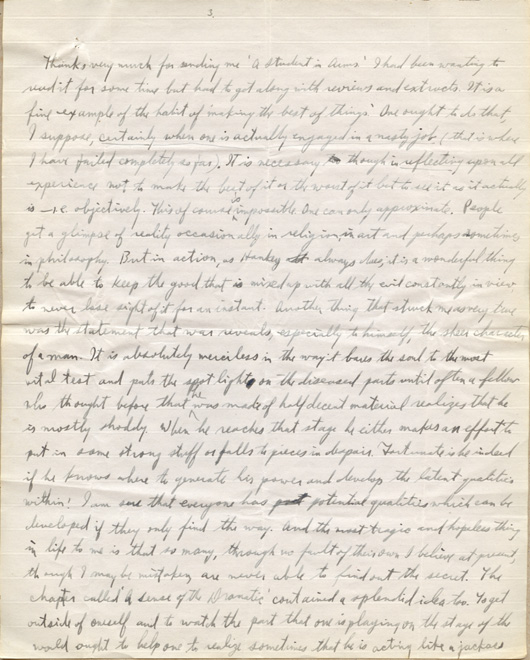 3.
Thanks very much for sending me 'A Student in Arms' I had been wanting to
read it for some time but had to get along with reviews and extracts. It is a
fine example of the habit of 'making the best of things'. One ought to do that,
I suppose, certainly when one is actually engaged in a nasty job. (that is where
I have failed completely so far). It is necessary though in reflecting upon old
experience not to make the best of it or the worst of it but to see it as it actually
is - i.e. objectively. This of course is impossible. One can only approximate. People
get a glimpse of reality occasionally in religion, in art and perhaps sometimes
in philosophy. But in action, as Hankey always does, it is a wonderful thing
to be able to keep the good that is mixed up with all the evil constantly in view
to never lose sight of it for an instant. Another thing that struck me as very true
was the statement that war reveals, especially to himself, the sheer character
of a man. It is absolutely merciless in the way it bares the soul to the most
vital test and puts the spot light on the diseased parts until often a fellow
who thought before that he was made of half decent material realizes that he
is mostly shoddy. When he reaches that stage he either makes an effort to
put in some strong stuff or falls to pieces in despair. Fortunate is he indeed
if he knows where to generate his power and develop the latent qualities
within! I am sure that everyone has potential qualities which can be
developed if they only find the way. And the most tragic and hopeless thing
in life to me is that so many, through no fault of their own I believe at present,
though I may be mistaken, are never able to find out the secret. The
chapter called 'A sense of the Dramatic' contained a splendid idea too. To get
outside of oneself and to watch the part that one is playing on the stage of the
world ought to help one to realize sometimes that he is acting like a jackass